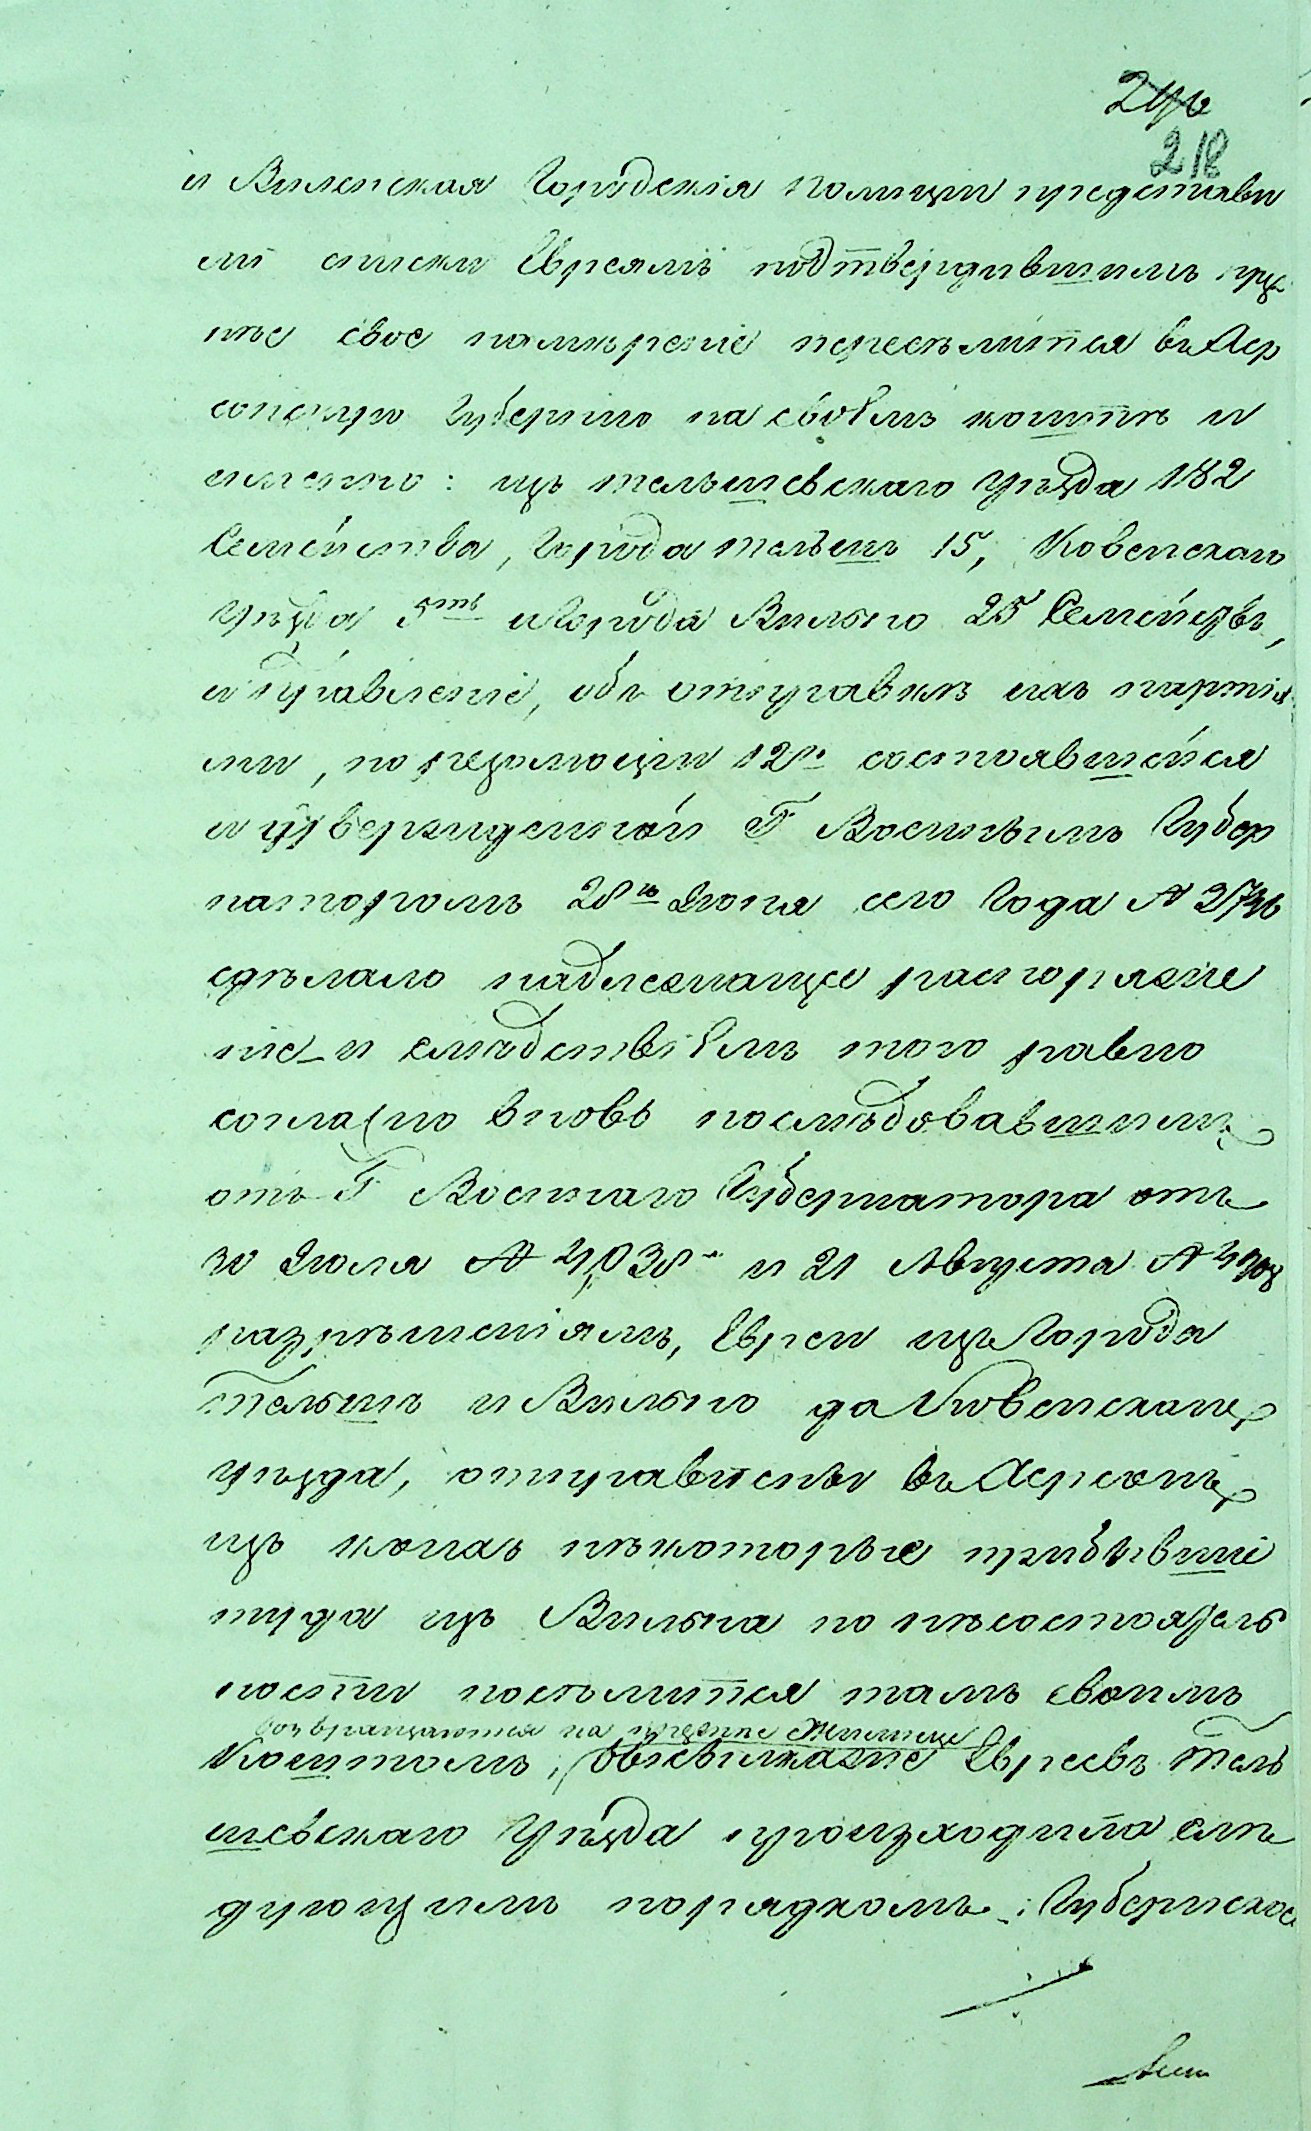 218
и Виленская Городскія Полиціи представи
ли списки Евреямъ подтвердившимъ преж
нѣе свое намѣреніе переселится въ Хер
сонскую Губернію на своемъ коштѣ и
именно: изъ тельшевскаго уѣзда 182
Семейства, Города тельшъ 15, Ковенскаго
Уѣзда 5ть и Города Вильно 25 Семействъ,
и Правленіе, объ отправкѣ ихъ партія
ми, по резолюціи состоявшейся
и утвержденной Г Военнымъ Губер
наторомъ Іюня сего Года №
сдѣлало надлежащее распоряже
ніе и слѣдствіемъ того равно
согласно вновь послѣдовавшимъ
отъ Г Военнаго Губернатора отъ
30 Іюля № и 21 Августа №
разрѣшеніямъ, Евреи изъ Города
Тельшъ и Вильно да Ковенскаго
уѣзда, отправлены въ Херсонъ
изъ коихъ нѣкоторые прибывшіе
туда изъ Вильна по несостоятель
ности поселится тамъ своимъ
возвращаются на прежнее жилище
Коштомъ, Евреевъ Тель
шевскаго Уѣзда происходила слѣ
дующимъ порядкомъ: Губернское